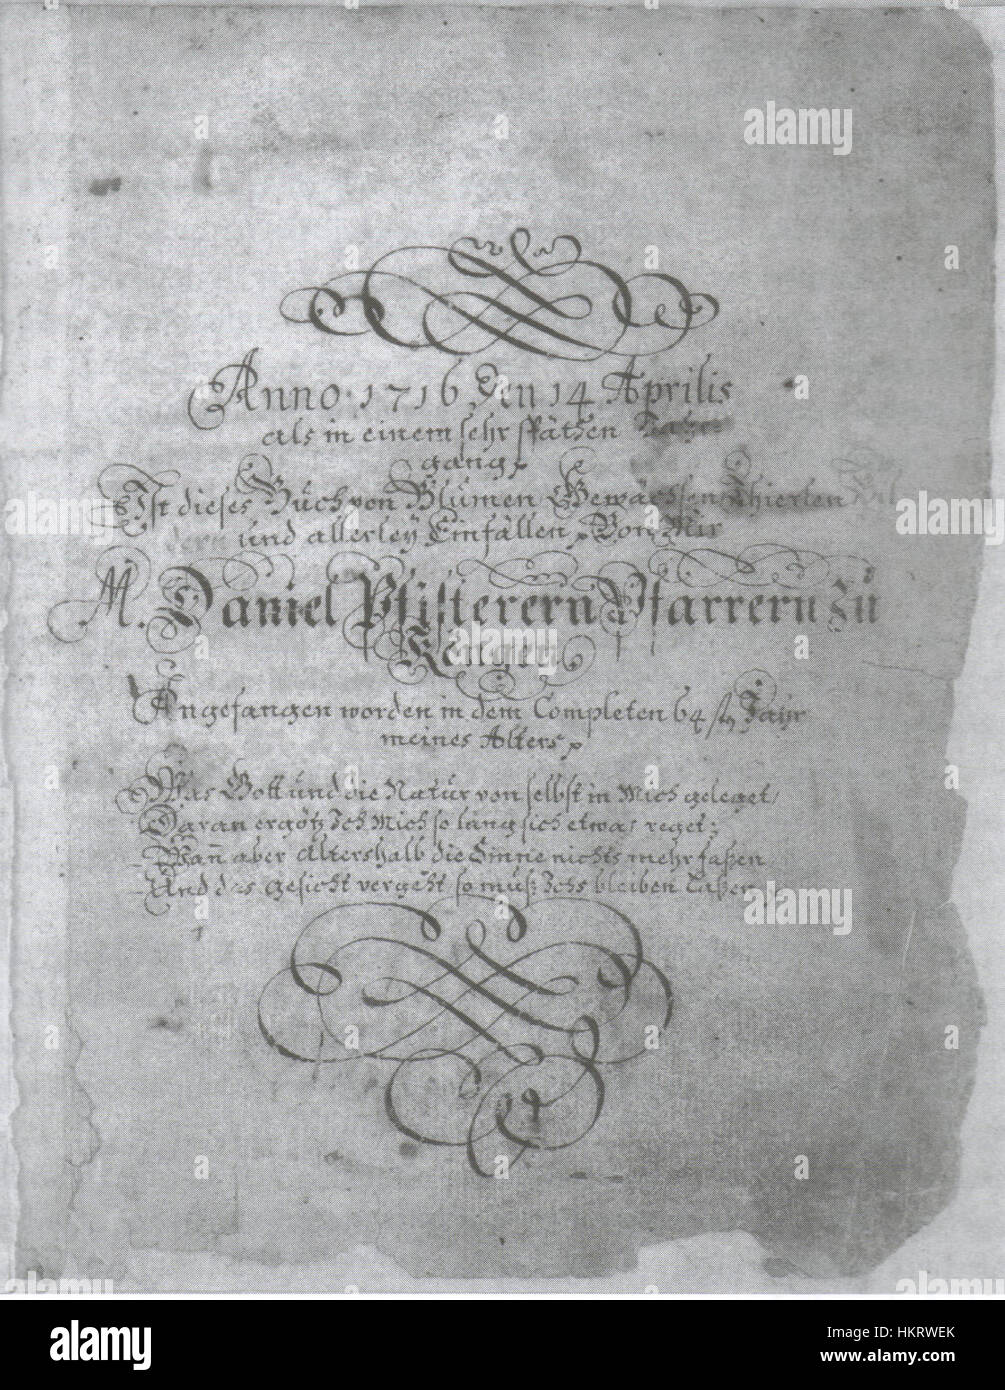 Anno 1716, den 14 Aprilis
als in einem sehr späthen
gang,
Ist dieses Büch von Blümen Gewächsen Thierlen Bil
dern und allerley Einfällen, Von Mir
M. Daniel Pfisterern Pfarrern zü
Köngen
Angefangen worden in dem Completen 64 sten Jahr
meines Alters,
Was Gott und die Natür von selbst in Mich geleget,
Daran ergötz Ich Mich so lang sich etwas reget;
Wañ aber Altershalb die Sinne nichts mehr faßen
Und das gesicht vergeht so muß Ichs bleiben Laßen
alamy
alamy
alamy stock photo
HKRWEK
www.alamy.com